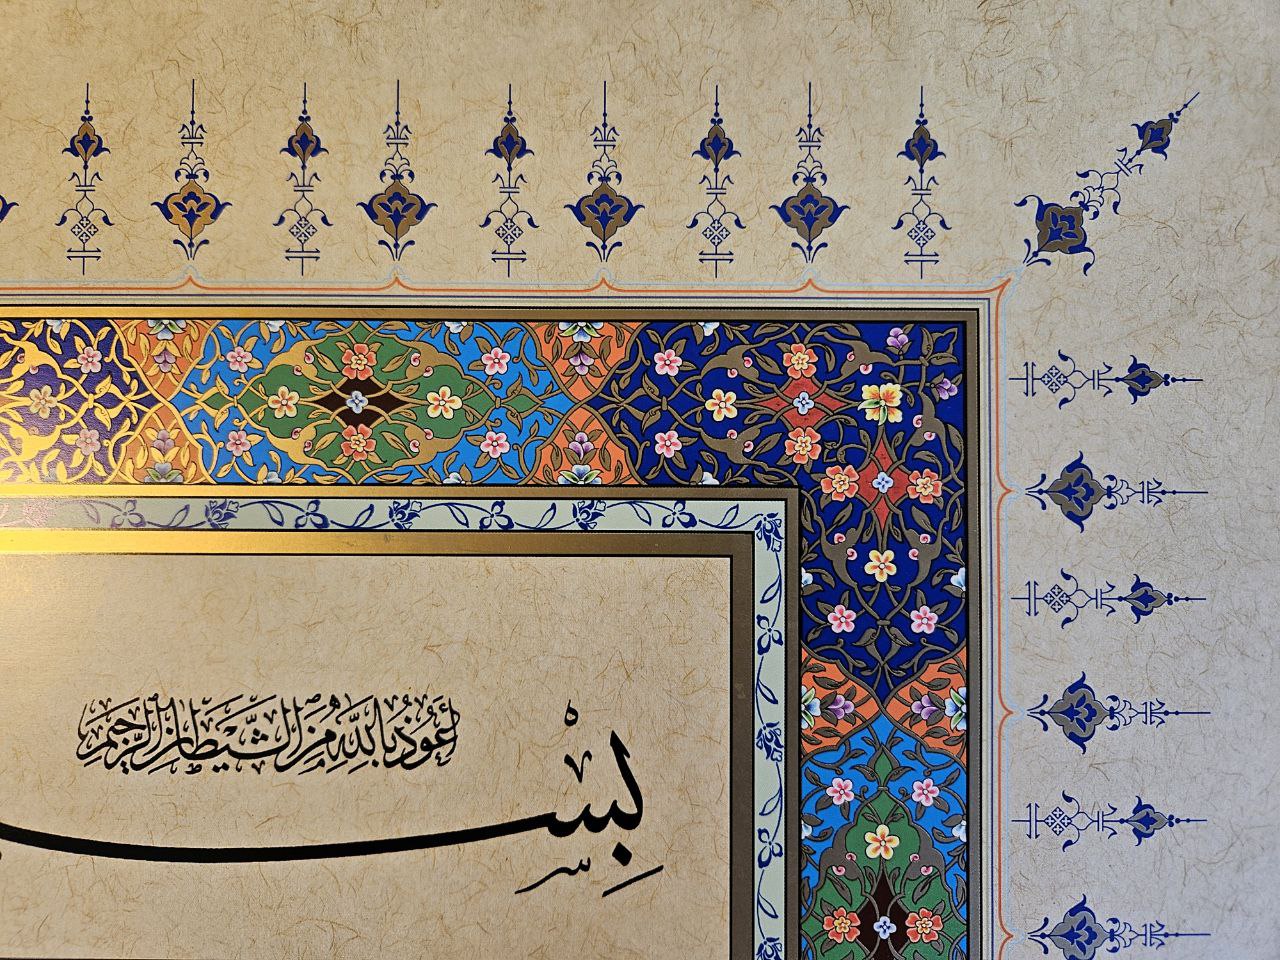 أَعُوذُ بِاللَّهِ مِنَ الشَّيْطَانِ الرَّجِيمِ
بِسْـ